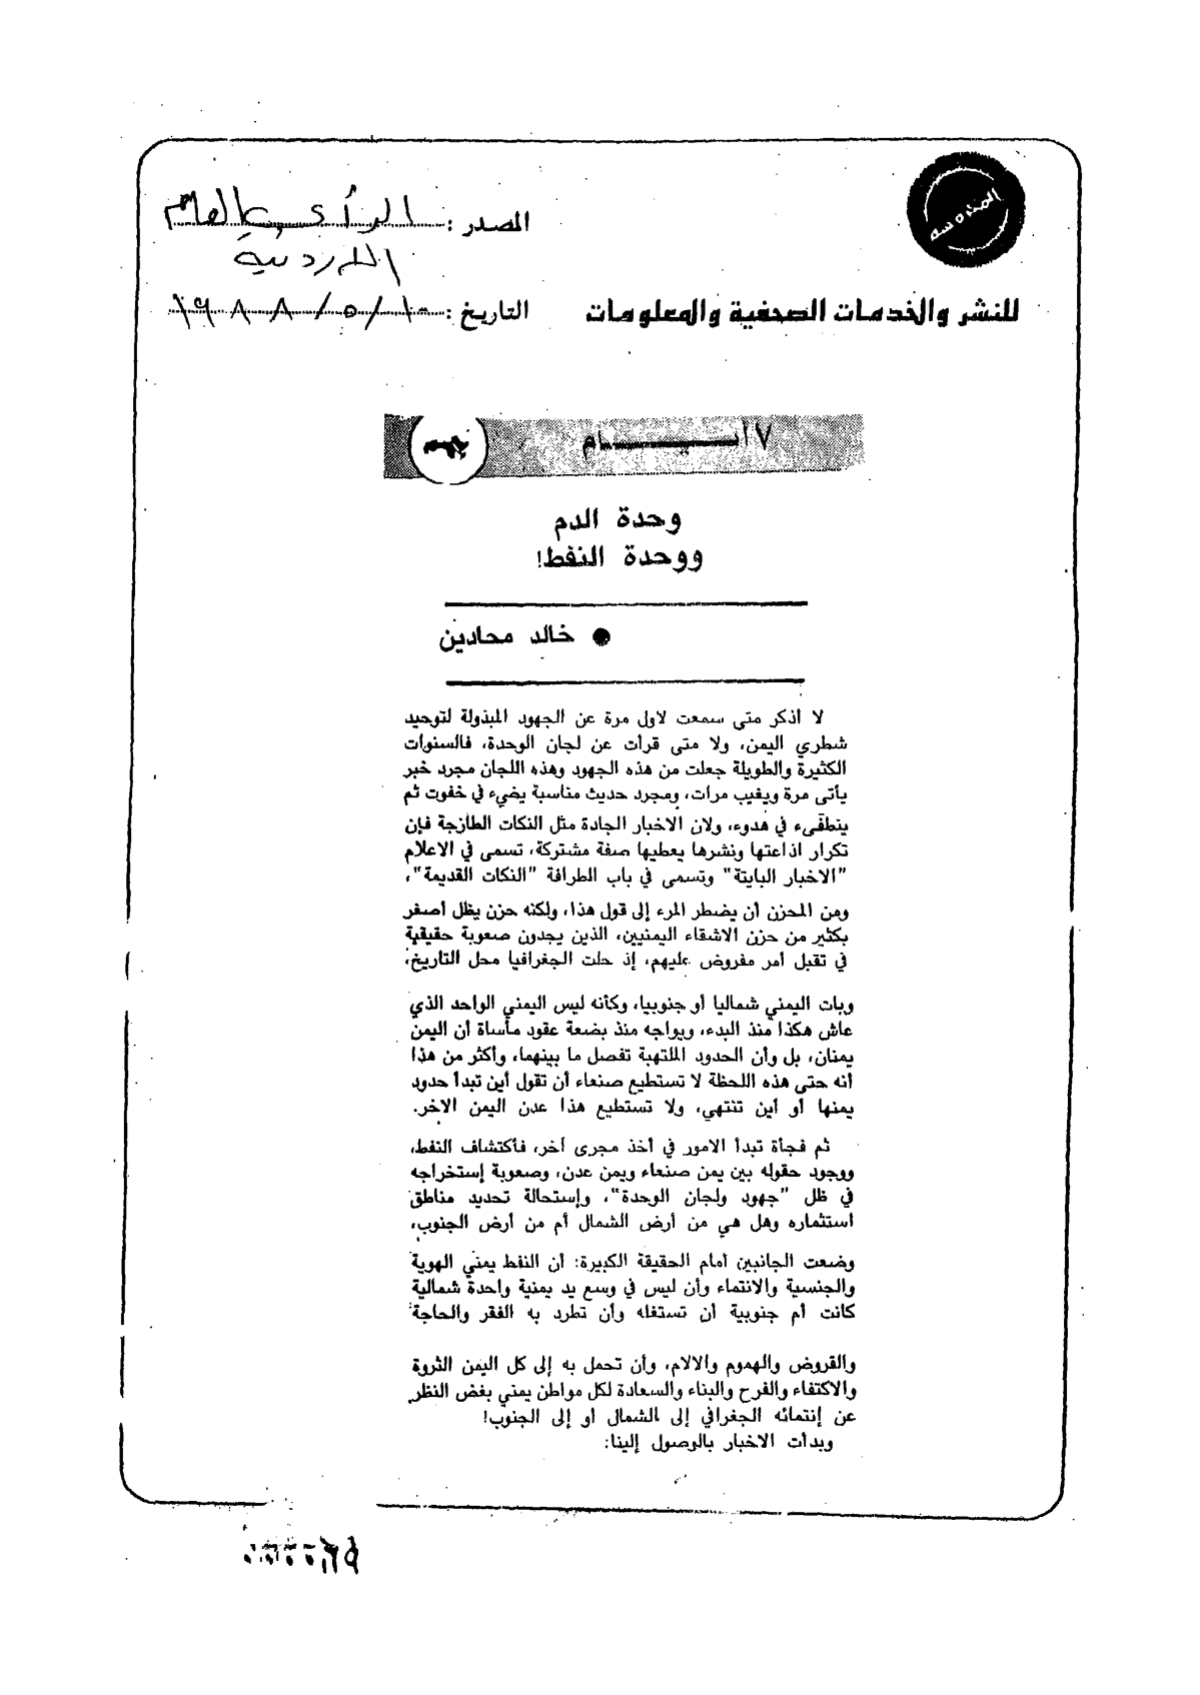 المحروسة
المصدر : الرأي العام
الأردنية
للنشر والخدمات الصحفية والمعلومات
التاريخ : ١٠/٥/١٩٨٨
٧ أيـــــام
وحدة الدم
ووحدة النفط!
● خالد محادين
لا اذكر متى سمعت لاول مرة عن الجهود المبذولة لتوحيد
شطري اليمن، ولا متى قرأت عن لجان الوحدة، فالسنوات
الكثيرة والطويلة جعلت من هذه الجهود وهذه اللجان مجرد خبر
يأتى مرة ويغيب مرات، ومجرد حديث مناسبة يضيء في خفوت ثم
ينطفىء في هدوء، ولان الاخبار الجادة مثل النكات الطازجة فإن
تكرار اذاعتها ونشرها يعطيها صفة مشتركة، تسمى في الاعلام
"الاخبار البايتة" وتسمى في باب الطرافة "النكات القديمة"،
ومن المحزن أن يضطر المرء إلى قول هذا، ولكنه حزن يظل أصغر
بكثير من حزن الاشقاء اليمنيين، الذين يجدون صعوبة حقيقية
في تقبل أمر مفروض عليهم، إذ حلت الجغرافيا محل التاريخ،
وبات اليمني شماليا أو جنوبيا، وكأنه ليس اليمني الواحد الذي
عاش هكذا منذ البدء، ويواجه منذ بضعة عقود مأساة أن اليمن
يمنان، بل وأن الحدود الملتهبة تفصل ما بينهما، وأكثر من هذا
أنه حتى هذه اللحظة لا تستطيع صنعاء أن تقول أين تبدأ حدود
يمنها أو أين تنتهي، ولا تستطيع هذا عدن اليمن الاخر.
ثم فجأة تبدأ الامور في أخذ مجرى أخر، فأكتشاف النفط،
ووجود حقوله بين يمن صنعاء ويمن عدن، وصعوبة إستخراجه
في ظل "جهود ولجان الوحدة"، وإستحالة تحديد مناطق
استثماره وهل هي من أرض الشمال أم من أرض الجنوب،
وضعت الجانبين أمام الحقيقة الكبيرة: أن النفط يمني الهوية
والجنسية والانتماء وأن ليس في وسع يد يمنية واحدة شمالية
كانت أم جنوبية أن تستغله وأن تطرد به الفقر والحاجة
والقروض والهموم والالام، وأن تحمل به إلى كل اليمن الثروة
والاكتفاء والفرح والبناء والسعادة لكل مواطن يمني بغض النظر
عن إنتمائه الجغرافي إلى الشمال أو إلى الجنوب!
وبدأت الاخبار بالوصول إلينا: